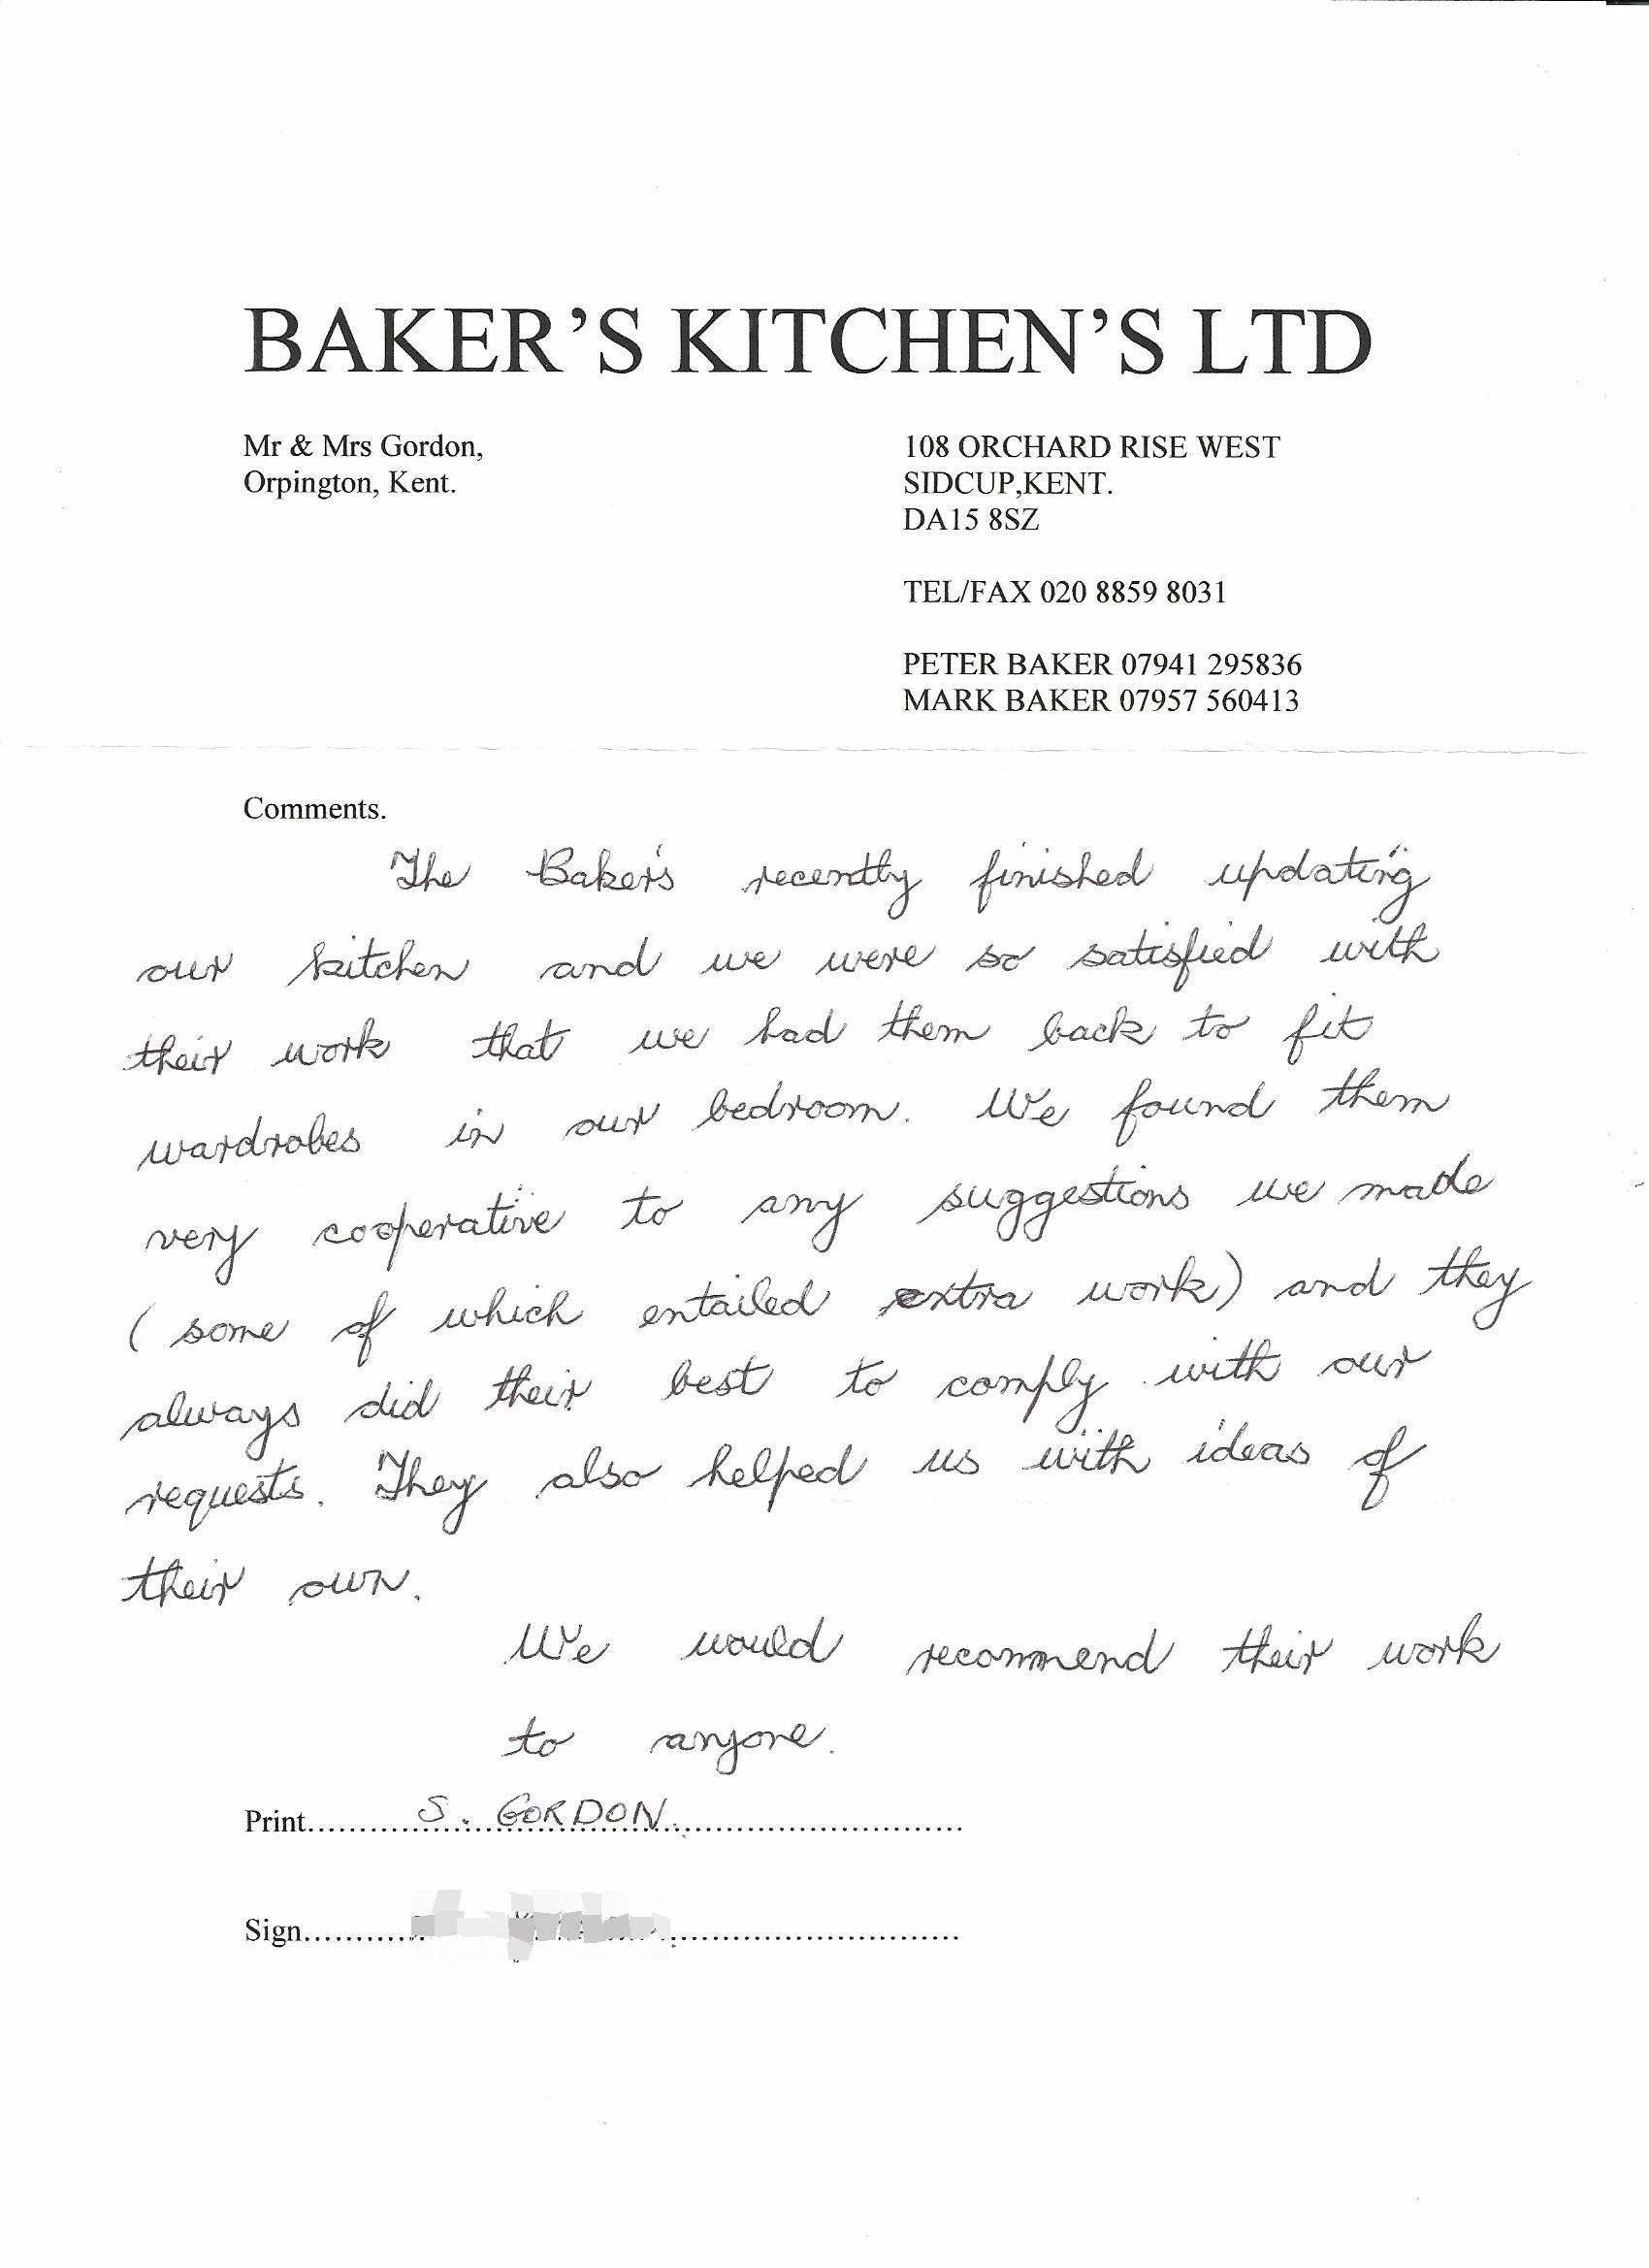 BAKER'S KITCHEN'S LTD
Mr & Mrs Gordon,
Orpington, Kent.
108 ORCHARD RISE WEST
SIDCUP,KENT.
DA15 8SZ
TEL/FAX 020 8859 8031
PETER BAKER 07941 295836
MARK BAKER 07957 560413
Comments.
The Baker's recently finished updating
our kitchen and we were so satisfied with
their work that we had them back to fit
wardrobes in our bedroom. We found them
very cooperative to any suggestions we made
(some of which entailed extra work) and they
always did their best to comply with our
requests. They also helped us with ideas of
their own.
We would recommend their work
to anyone.
Print...........S. GORDON...............................
Sign.......................................